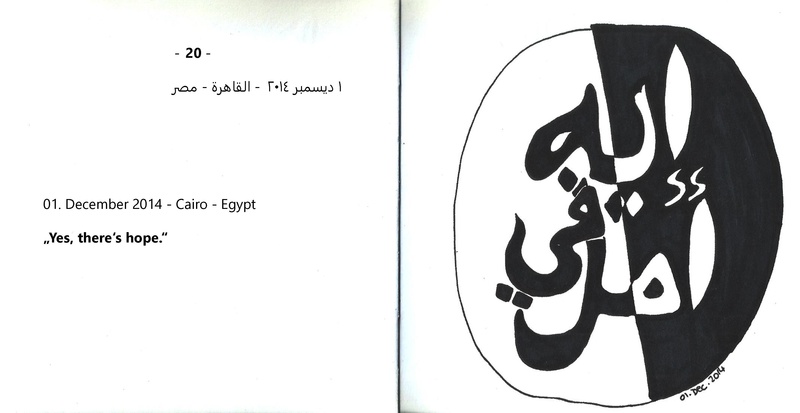 - 20 -
١ ديسمبر ٢٠١٤ - القاهرة - مصر
01. December 2014 - Cairo - Egypt
„Yes, there‘s hope.“
إيه
في
أمل
01. DEC. 2014